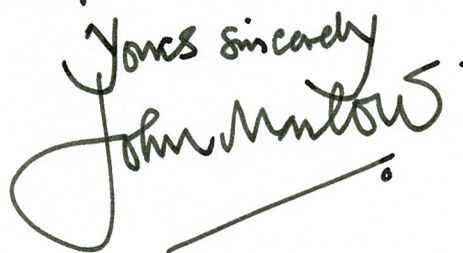 Yours sincerely
John Marlow